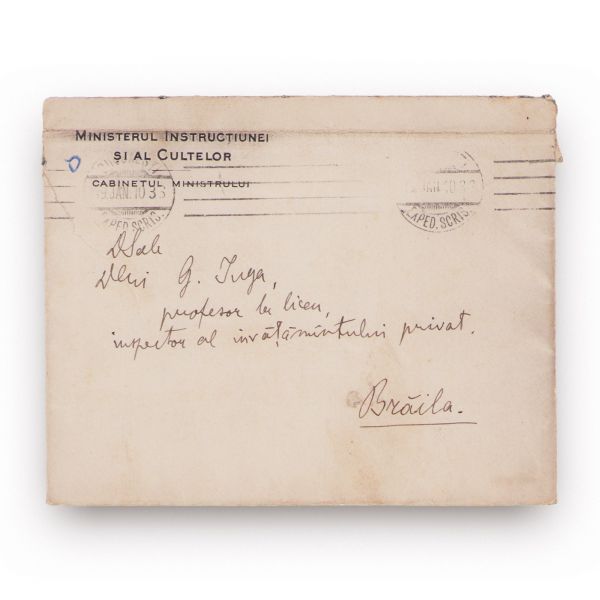 MINISTERUL INSTRUCTIUNEI
ȘI AL CULTELOR
CABINETUL MINISTRULUI
9.JAN.10 3
EXPED.SCRIS
JAN.10 3
EXPED.SCRIS
DSale
Dlui G. Iuga,
profesor la liceu,
inspector al învățămîntului privat.
Brăila.